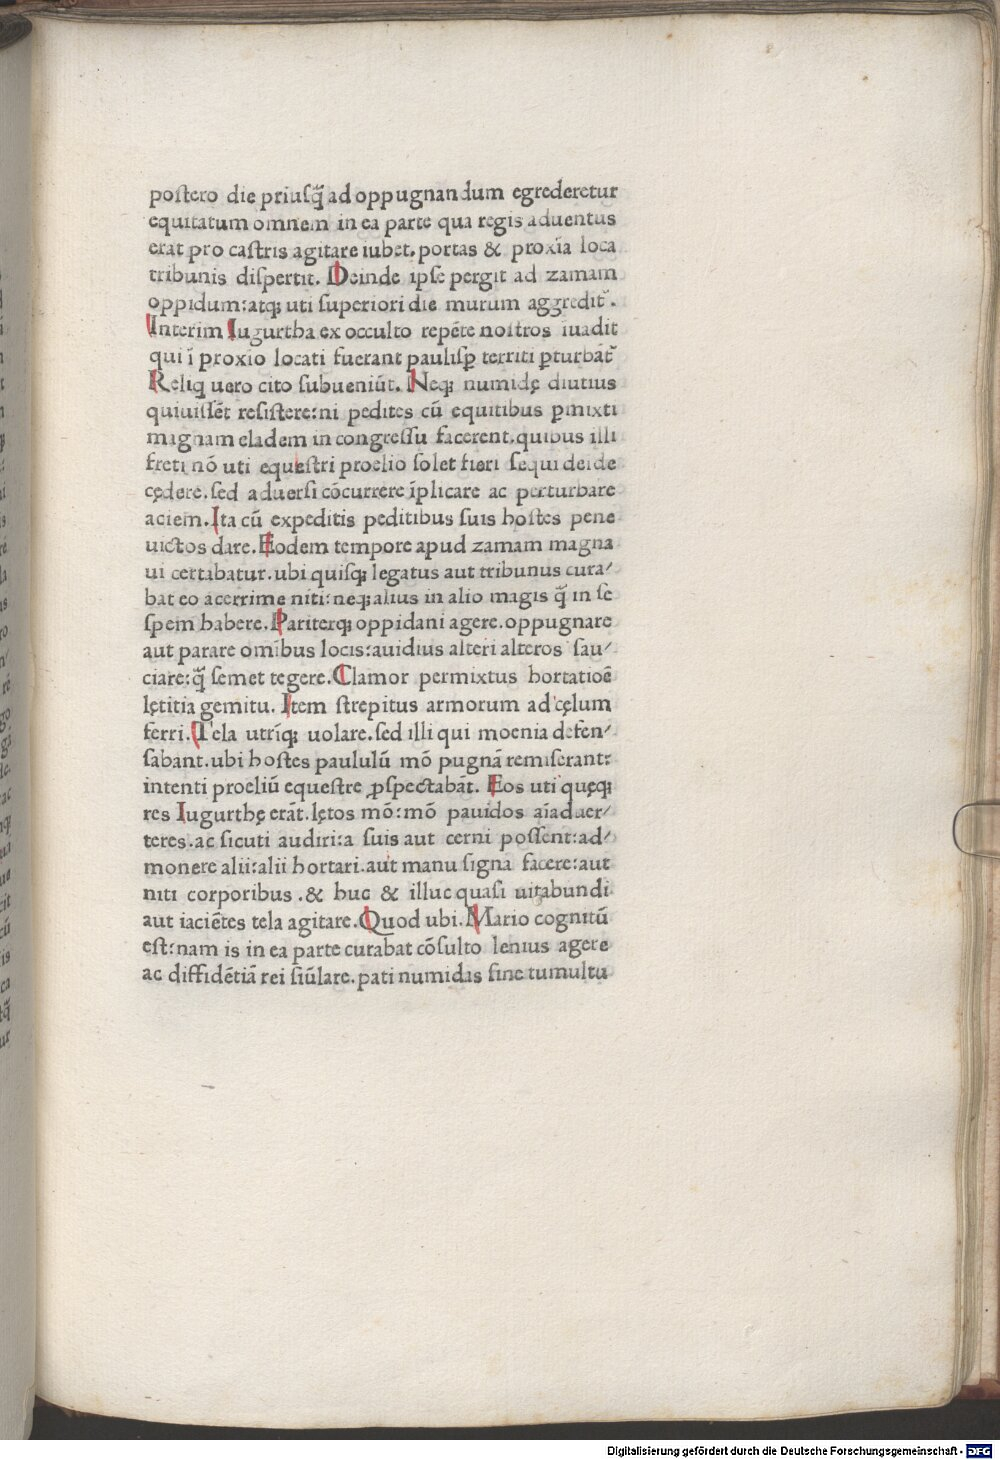 postero die priusq̃ ad oppugnandum egrederetur
equitatum omnem in ea parte qua regis aduentus
erat pro castris agitare iubet. portas & proxĩa loca
tribunis dispertit. Deinde ipse pergit ad zamam
oppidum: atq; uti superiori die murum aggredit᷑.
Interim Iugurtha ex occulto repẽte nostros ĩuadit
qui ĩ proxĩo locati fuerant paulisꝑ territi ꝑturbãt᷑
Reliq uero cito subueniũt. Neq; numidę diutius
quiuissẽt resistere: ni pedites cũ equitibus ꝑmixti
magnam eladem in congressu facerent. quibus illi
freti nõ uti equestri proelio solet fieri sequi deĩde
cędere. sed aduersi cõcurrere ĩplicare ac perturbare
aciem. Ita cũ expeditis peditibus suis hostes pene
uictos dare. Eodem tempore apud zamam magna
ui certabatur. ubi quisq; legatus aut tribunus cura⸗
bat eo acerrime niti: neq; alius in alio magis q̃ in se
spem habere. Pariterq; oppidani agere. oppugnare
aut parare omĩbus locis: auidius alteri alteros sau⸗
ciare: q̃ semet tegere. Clamor permixtus hortatioẽ
lętitia gemitu. Item strepitus armorum ad cęlum
ferri. Tela utrĩq; uolare. sed illi qui moenia defen⸗
sabant. ubi hostes paululũ mõ pugnã remiserant:
intenti proeliũ equestre ꝓspectabãt. Eos uti quęq;
res Iugurthę erãt. lętos mõ: mõ pauidos aĩaduer⸗
teres. ac sicuti audiri: a suis aut cerni possent: ad⸗
monere alii: alii hortari. aut manu signa facere: aut
niti corporibus. & huc & illuc quasi uitabundi
aut iaciẽtes tela agitare. Quod ubi. Mario cognitũ
est: nam is in ea parte curabat cõsulto lenius agere
ac diffidẽtiã rei siũlare. pati numidas sine tumultu
Digitalisierung gefördert durch die Deutsche Forschungsgemeinschaft - DFG